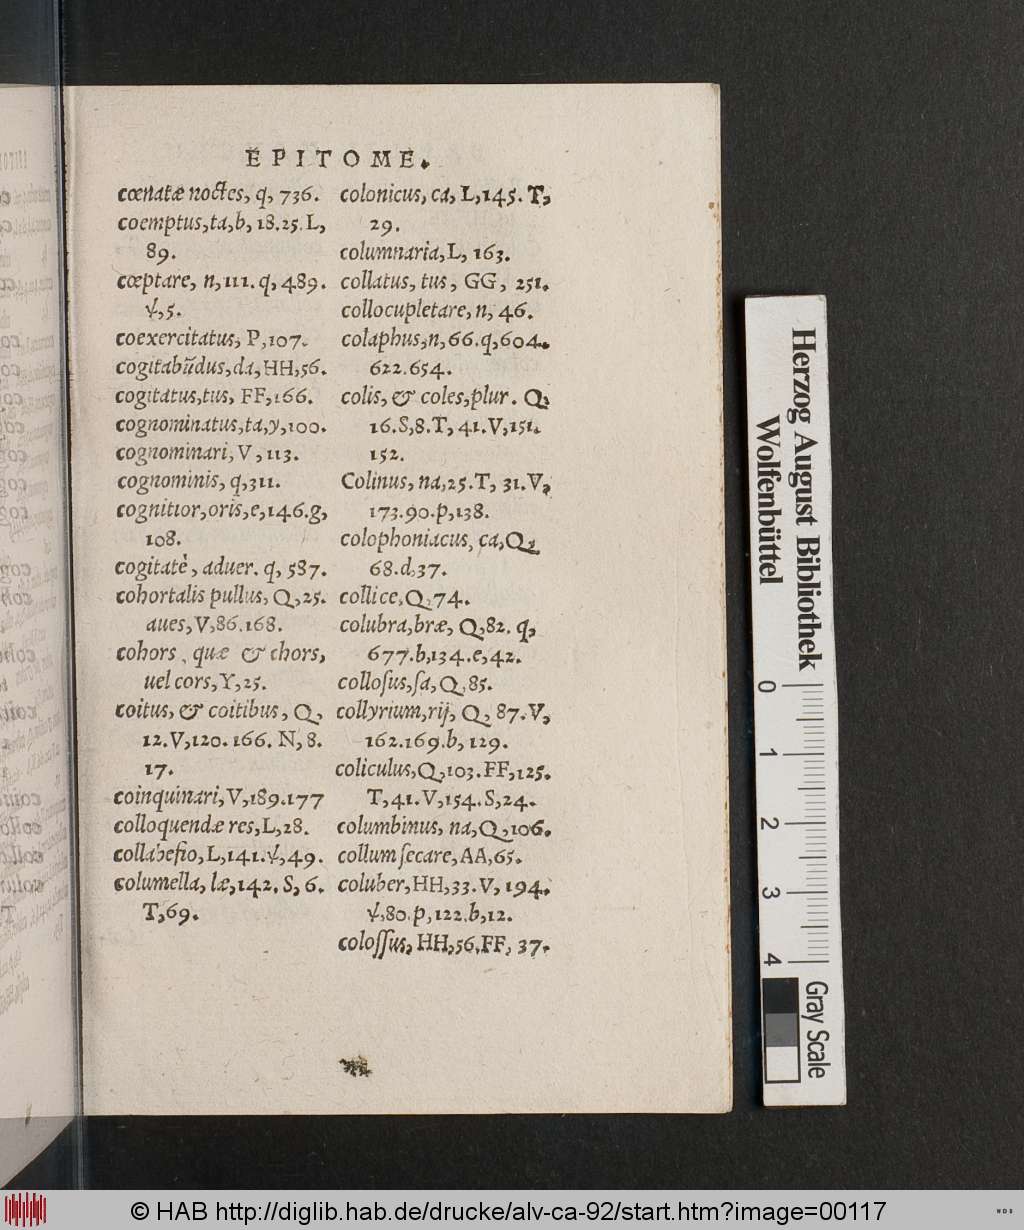 EPITOME.
cœnatæ noctes, q, 736.
coemptus,ta,b, 18.25.L,
89.
cœptare, n,111. q, 489.
ψ,5.
coexercitatus, P,107.
cogitabūdus,da,HH,56.
cogitatus,tus, FF,166.
cognominatus,ta,y,100.
cognominari, V,113.
cognominis, q,311.
cognitior,oris,e,146.g,
108.
cogitatè, aduer. q, 587.
cohortalis pullus, Q,25.
aues,V,86.168.
cohors, quæ & chors,
uel cors,Y,25.
coitus, & coitibus, Q,
12.V,120.166. N, 8.
17.
coinquinari,V,189.177
colloquendæ res,L,28.
collabefio,L,141.ψ,49.
columella, læ,142. S, 6.
T,69.
colonicus, ca, L,145. T,
29.
columnaria,L, 163.
collatus, tus, GG, 251.
collocupletare, n, 46.
colaphus,n,66.q,604.
622.654.
colis, & coles,plur. Q,
16.S,8.T, 41.V,151.
152.
Colinus, na,25.T, 31.V,
173.90.p,138.
colophoniacus, ca,Q,
68.d,37.
collice,Q,74.
colubra,bræ, Q,82. q,
677.b,134.e,42.
colloſus,ſa,Q,85.
collyrium,rij, Q, 87.V,
162.169.b, 129.
coliculus,Q,103.FF,125.
T,41.V,154.S,24.
columbinus, na,Q,106.
collum ſecare,AA,65.
coluber,HH,33.V, 194.
ψ,80.p,122.b,12.
coloſſus, HH,56.FF, 37.
Herzog August Bibliothek
Wolfenbüttel
0 1 2 3 4
Gray Scale
© HAB http://diglib.hab.de/drucke/alv-ca-92/start.htm?image=00117